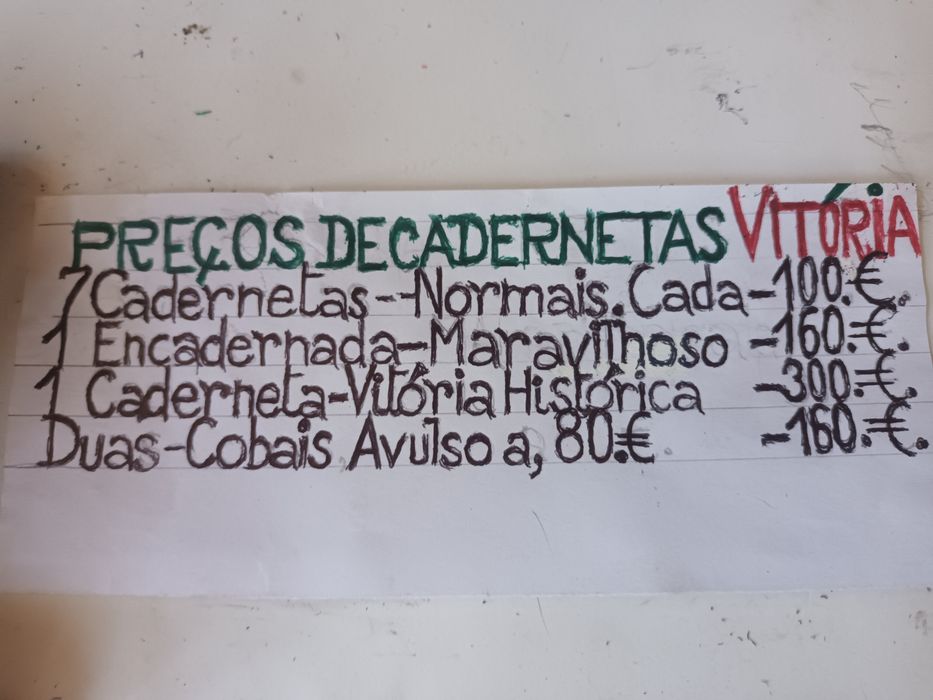 PREÇOS DE CADERNETAS VITÓRIA
7 Cadernetas--Normais. Cada-100.€.
1 Encadernada-Maravilhoso -160.€.
1 Caderneta-Vitória Histórica -300.€.
Duas-Cobais Avulso a, 80.€ -160.€.